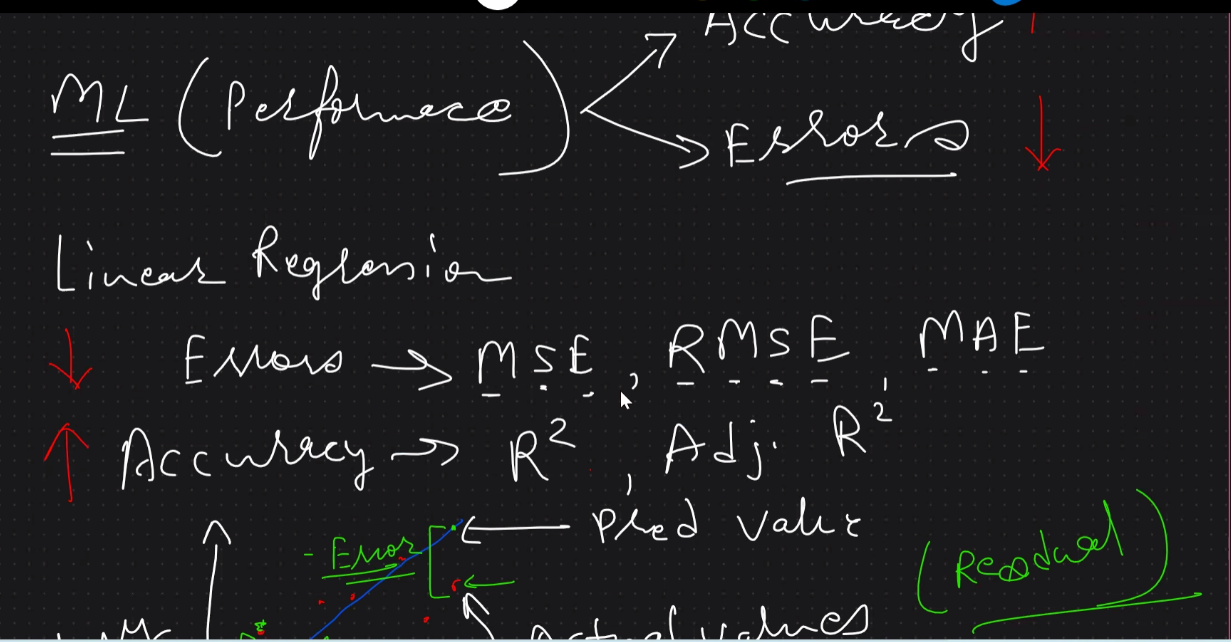 Accuracy
ML (Performace)
Errors
Linear Regression
Errors → MSE, RMSE, MAE
Accuracy → R², Adj. R²
Pred Value
- Error
(Residual)
Actual values